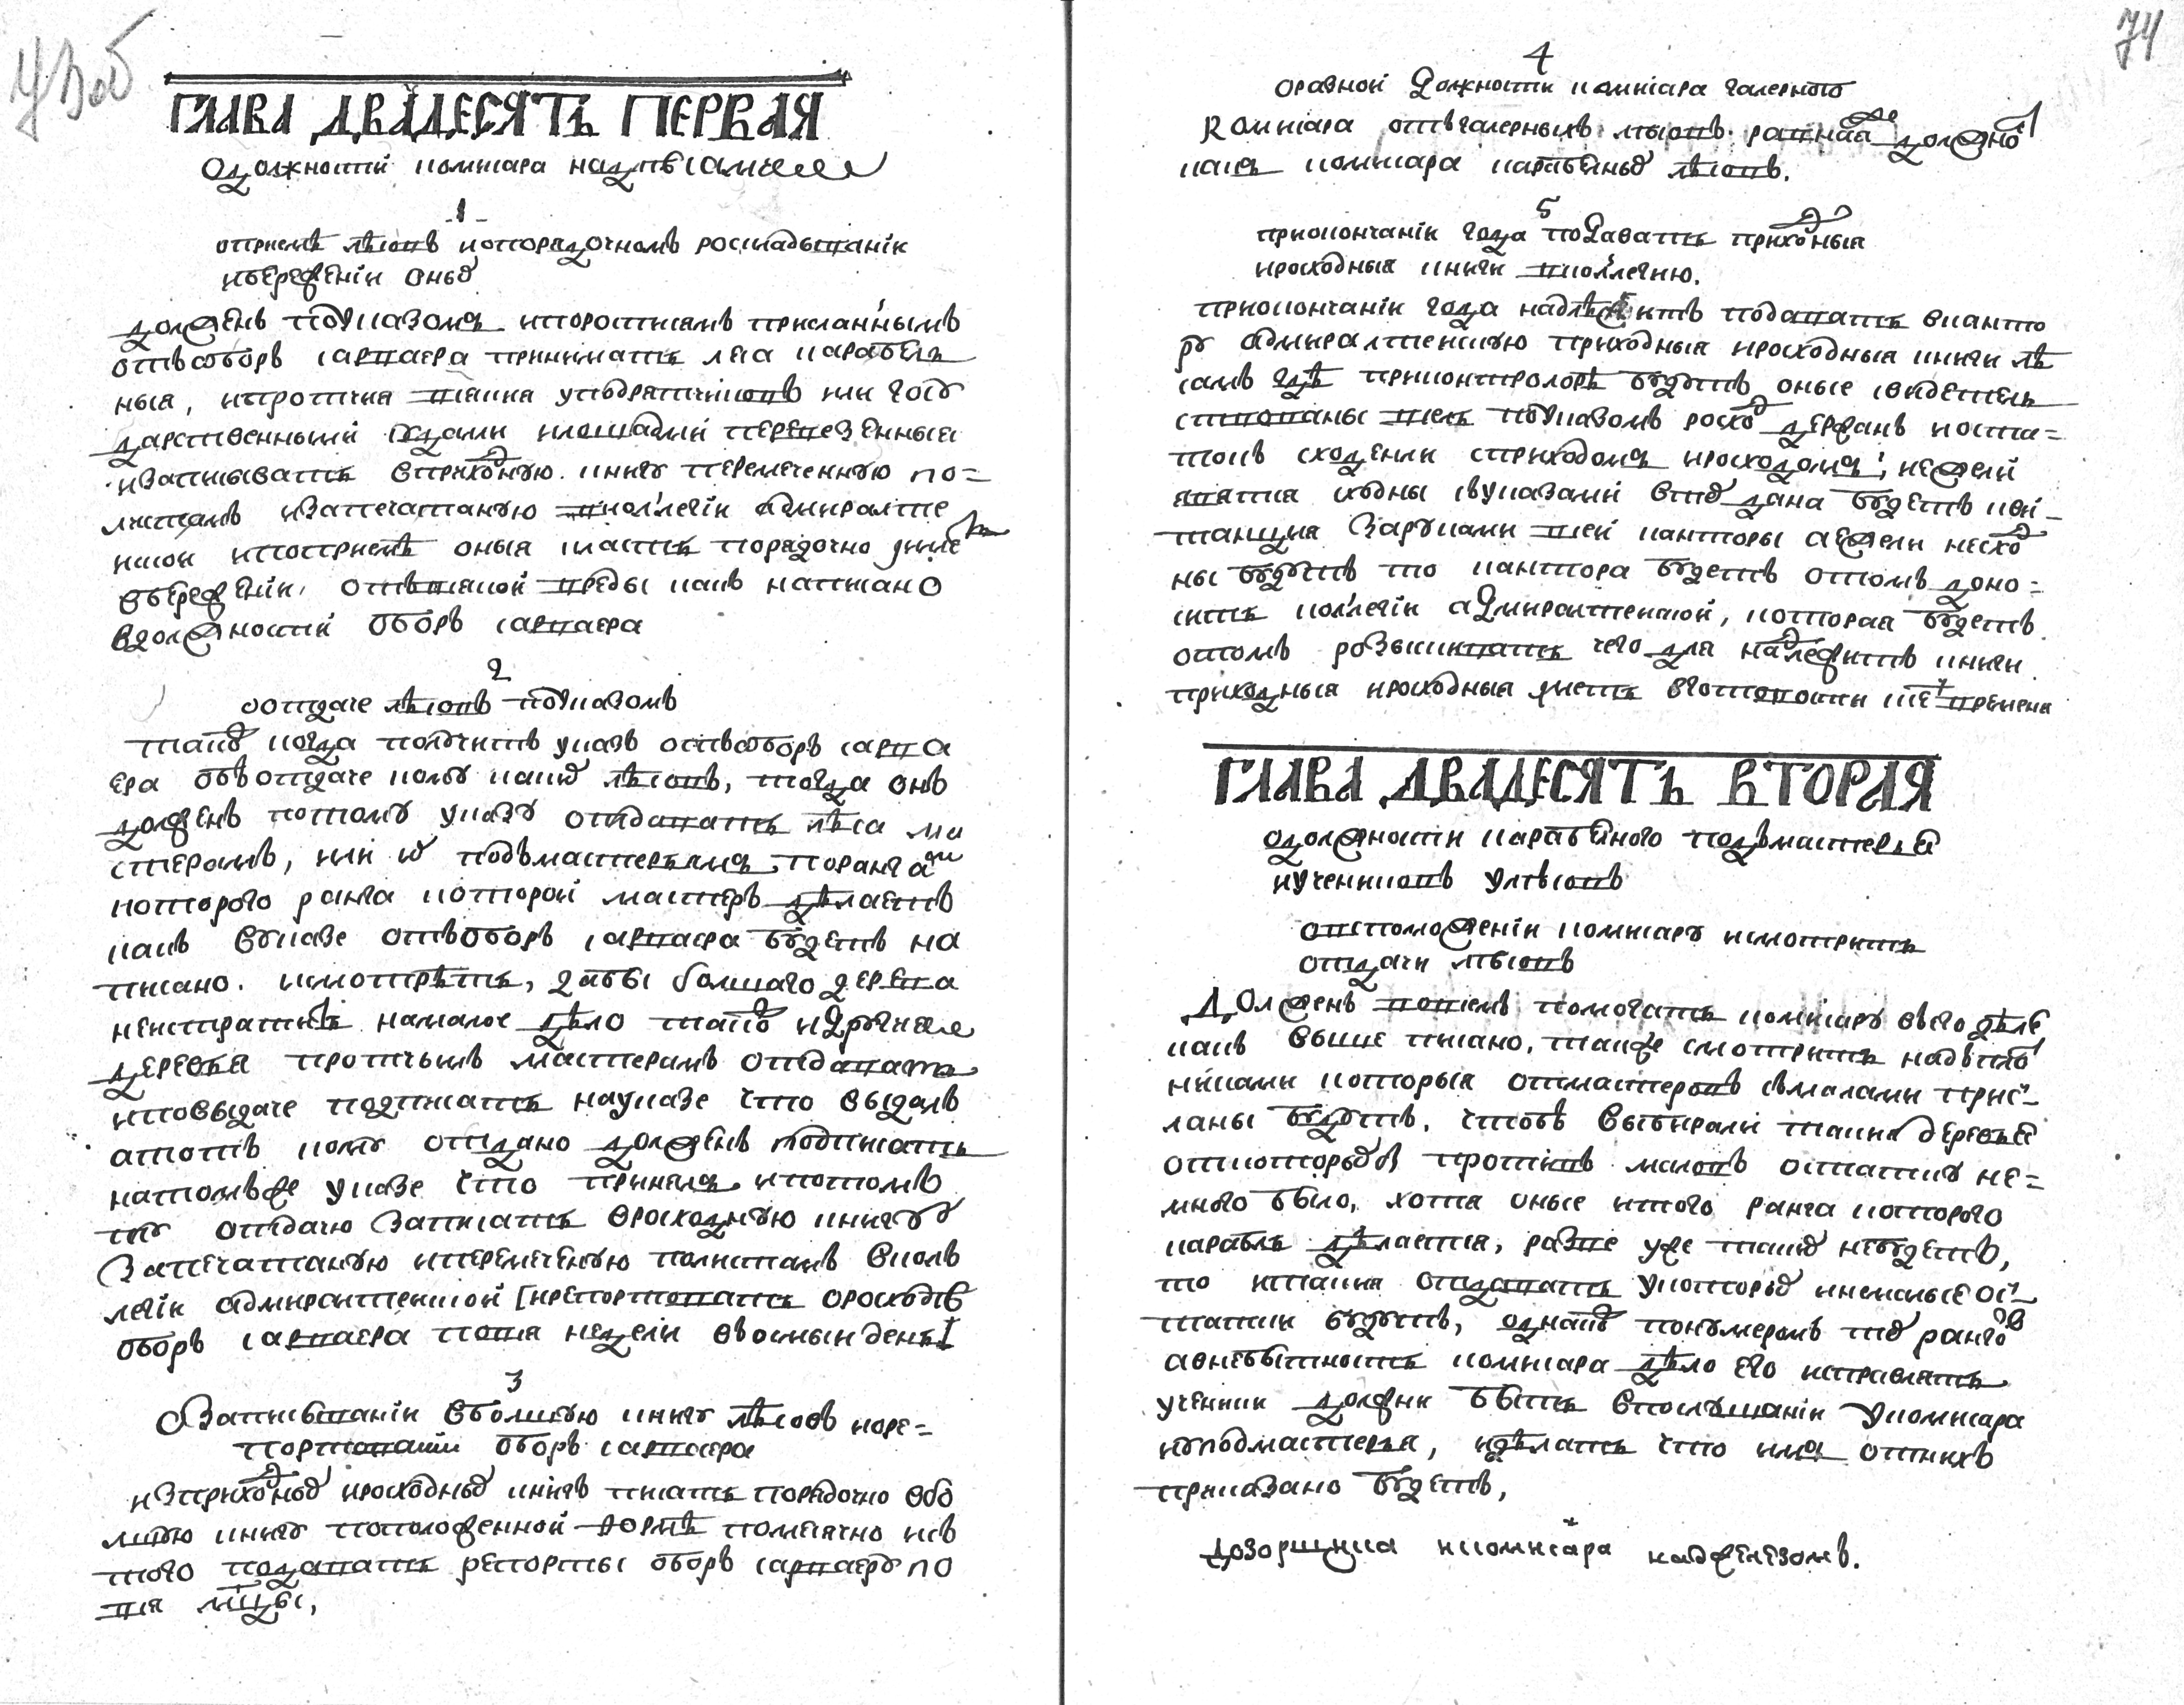 74
ГЛАВА ДВАДЕСЯТЬ ПЕРВАЯ
О должности комисара над лѣсами
1
о приемѣ лѣсовъ и о порядочномъ роскладывании
и бережении оныхъ
должень по указомъ и по росписямъ присланнымъ
отъ оборъ сарваера принимать леса карабель
ныя, и протчия всякия у подрятчиковъ или госу
дарственными судами и лошадми перевезенныя
и записывать в приходную книгу перемеченную по=
листамъ и запечатаную в коллегии адмиралтеи
скои и по приемѣ оныя класть порядочно и
в бережении, отъ всякой вреды какъ написано
в должности оборъ сарваера
2
о отдаче лѣсовъ по указомъ
такъ когда получитъ указъ отъ оборъ сарва
ера объ отдаче кому какихъ лѣсовъ, тогда онъ
долженъ по тому указу отдавать лѣса ма
стерамъ, или их подъмастерьямъ по рангамъ
которого ранга которой мастеръ дѣлаетъ
какъ в указе отъ оборъ сарваера будетъ на
писано. и смотрѣть, дабы болшаго дерева
не истратить на малое дѣло також и других
деревья протчымъ мастерамъ отдавать
и по выдаче подписать на указе что выдалъ
а тотъ кому отдано долженъ подписать
на томъ же указе что принялъ и потомъ
ту отдачю записать в росходную книгу
запечатаную и перемеченую по листамъ в кол
легии адмиралтеискои [и репортовать о росходѣ
оборъ сарваера по вся недели в восмыи день]
3
О записывании в болшую книгу лѣсовъ и о ре=
портовании оборъ сарваера
из приходныхъ и росходныхъ книгъ писать порядочно в бо
лшую книгу по положенной формѣ помесячно и съ
того подавать репорты оборъ сарваеру по
вся мцы,
4
о равной должности комисара галерного
Комисара отъ галерныхъ лѣсовъ равная же должность
какъ комисара карабелныхъ лѣсовъ.
5
при окончании года подавать приходныя
и росходныя книги в коллегию.
при окончании года надлежитъ подавать в канто
ру адмиралтеискую приходныя и росходныя книги лѣ
самъ гдѣ при контролорѣ будутъ оные свидетель
ствованы всель по указомъ росход держанъ и оста=
токъ сходенли с приходомъ и росходомъ, и ежели
явятся сходны с указами в тѣх дана будетъ кви=
танция за руками всеи канторы а ежели несход
ны будутъ то кантора будетъ о томъ доно=
сить коллегии адмиралтеискои, которая будетъ
о томъ розыскивать чего для надлежитъ книги
приходныя и росходныя иметь в готовости все времена
ГЛАВА ДВАДЕСЯТЬ ВТОРАЯ
о должности карабелного подъмастерья
и учениковъ у лѣсовъ
о вспоможении комисару и смотрить
отдачи лѣсовъ
Долженъ во всемъ помогать комисару въ его дѣле
какъ выше писано, также смотрить надъ плот
никами которыя от мастеровъ съ малами прис=
ланы будутъ, чтобъ выбирали такия деревья
от которыхъ противъ маловъ остатку не=
много было, хотя оные и того ранга которого
карабль дѣлается, разве уже такихъ не будетъ,
то и такия отдавать у которыхъ и немалые ос=
татки будутъ, однакъ по нумерамъ тѣх ранговъ
а в небытность комисара дѣло его исправлять
ученики должни быть в послушании у комисара
и у подмастерья, и дѣлать что имъ от нихъ
приказано будетъ,
дозорщика и комисара над желѣзомъ.